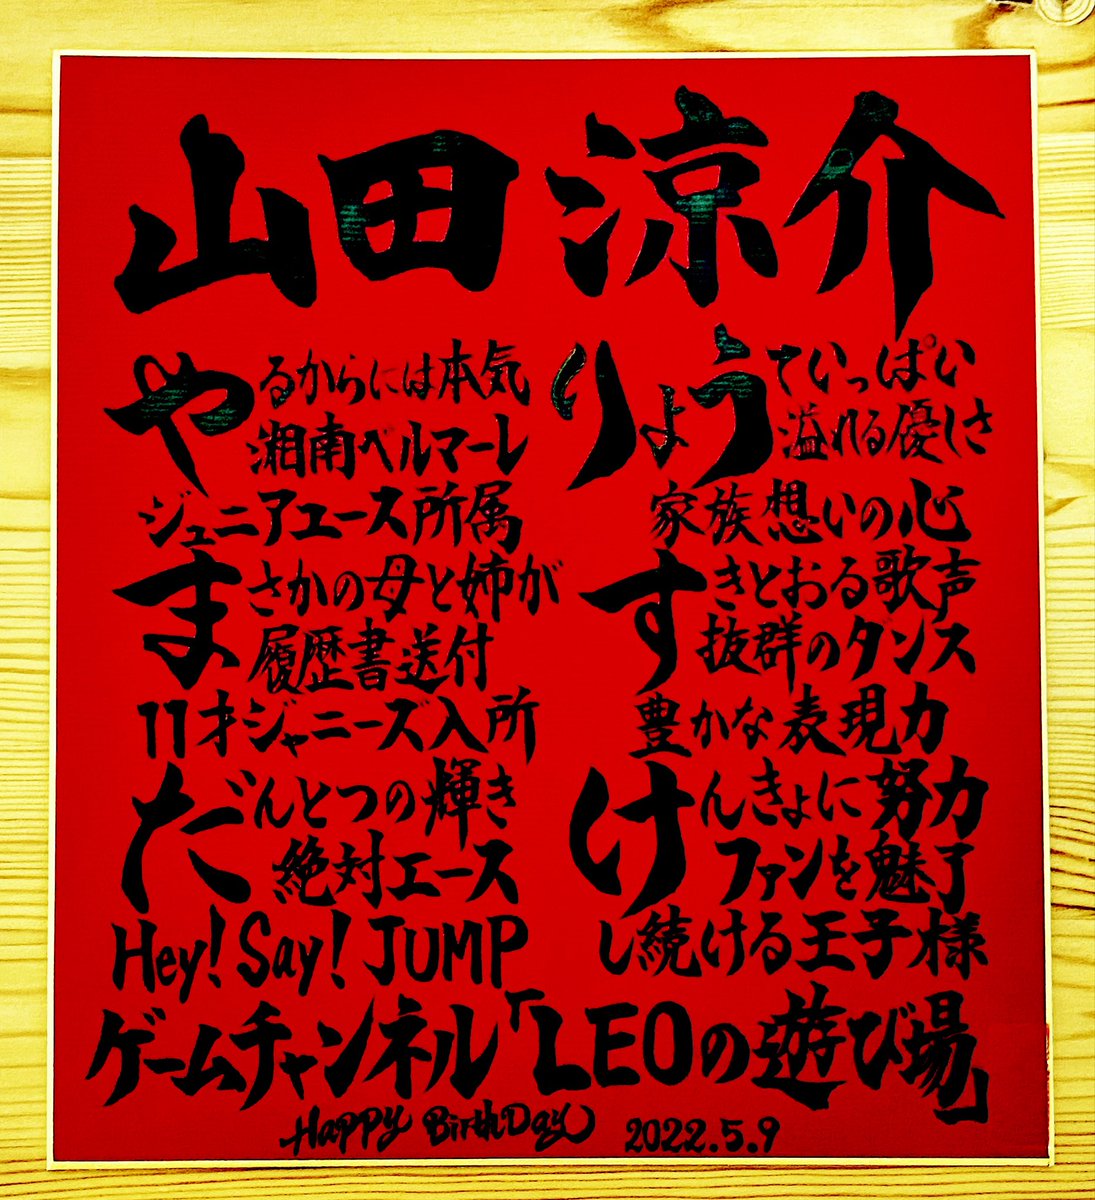 山田涼介
やるからには本気
湘南ベルマーレ
ジュニアユース所属
まさかの母と姉が
履歴書送付
11才ジャニーズ入所
だんとつの輝き
絶対エース
Hey! Say! JUMP
りょうていっぱい
溢れる優しさ
家族想いの心
すきとおる歌声
抜群のダンス
豊かな表現力
けんきょに努力
ファンを魅了
し続ける王子様
ゲームチャンネル「LEOの遊び場」
Happy BirthDay 2022.5.9